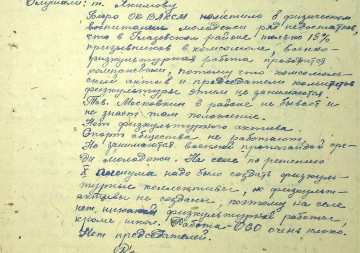 Слушали: т. Якимову
Бюро ОК ВЛКСМ наметило в физическом
воспитании молодежи ряд недостатков,
что в Глазовском районе только 15%
призывников в комсомоле, военно-
физкультурная работа проводится
комсомольский, потому что комсомоль-
ский актив и председатели комитетов
физкультуры этим не занимаются.
Тов. Московкин в районе не бывает и
не знает там положение.
Нет физкультурного актива
Спорт общества не работают,
Не занимаются военной пропагандой сре-
ди молодежи. На селе по решению
X пленума надо было создать физкуль-
турные коллективы, но физкульт-
активы не созданы, поэтому на селе
нет никакой физкультурной работы,
кроме школ. Работа ОСО очень плохо.
Нет председателей.